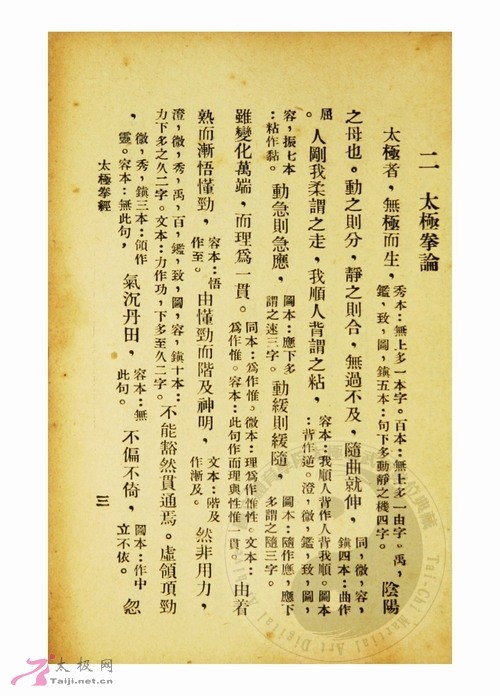 二　太極拳論
太極者，無極而生，秀本：無上多一本字。百本：無上多一由字。禹，鑑，致，圖，鎮五本：句下多動靜之機四字。陰陽
之母也。動之則分，靜之則合，無過不及，隨曲就伸，同，微，容，鎮四本：曲作
屈。人剛我柔謂之走，我順人背謂之粘，容本：我順人背作人背我順。圖本：背作逆。澄，微，鑑，致，圖，
容，振七本：粘作黏。動急則急應，圖本：應下多謂之速三字。動緩則緩隨，圖本：隨作應，應下多謂之隨三字。
雖變化萬端，而理爲一貫。同本：爲作惟。微本：理爲作惟性。文本：爲作惟。容本：此句作而理與性惟一貫。由着
熟而漸悟懂勁，容本：悟作至。由懂勁而階及神明，文本：階及作漸及。然非用力，
澄，微，秀，禹，百，鑑，致，圖，容，鎮十本：力下多之久二字。文本：力作功，下多至久二字。不能豁然貫通焉。虛領頂勁
，微，秀，鎮三本：領作靈。容本：無此句，氣沉丹田，容本：無此句。不偏不倚，圖本：作中立不依。忽
太極拳經
三
太极网
Taiji.net.cn
Tai-Chi Martial Art Digital